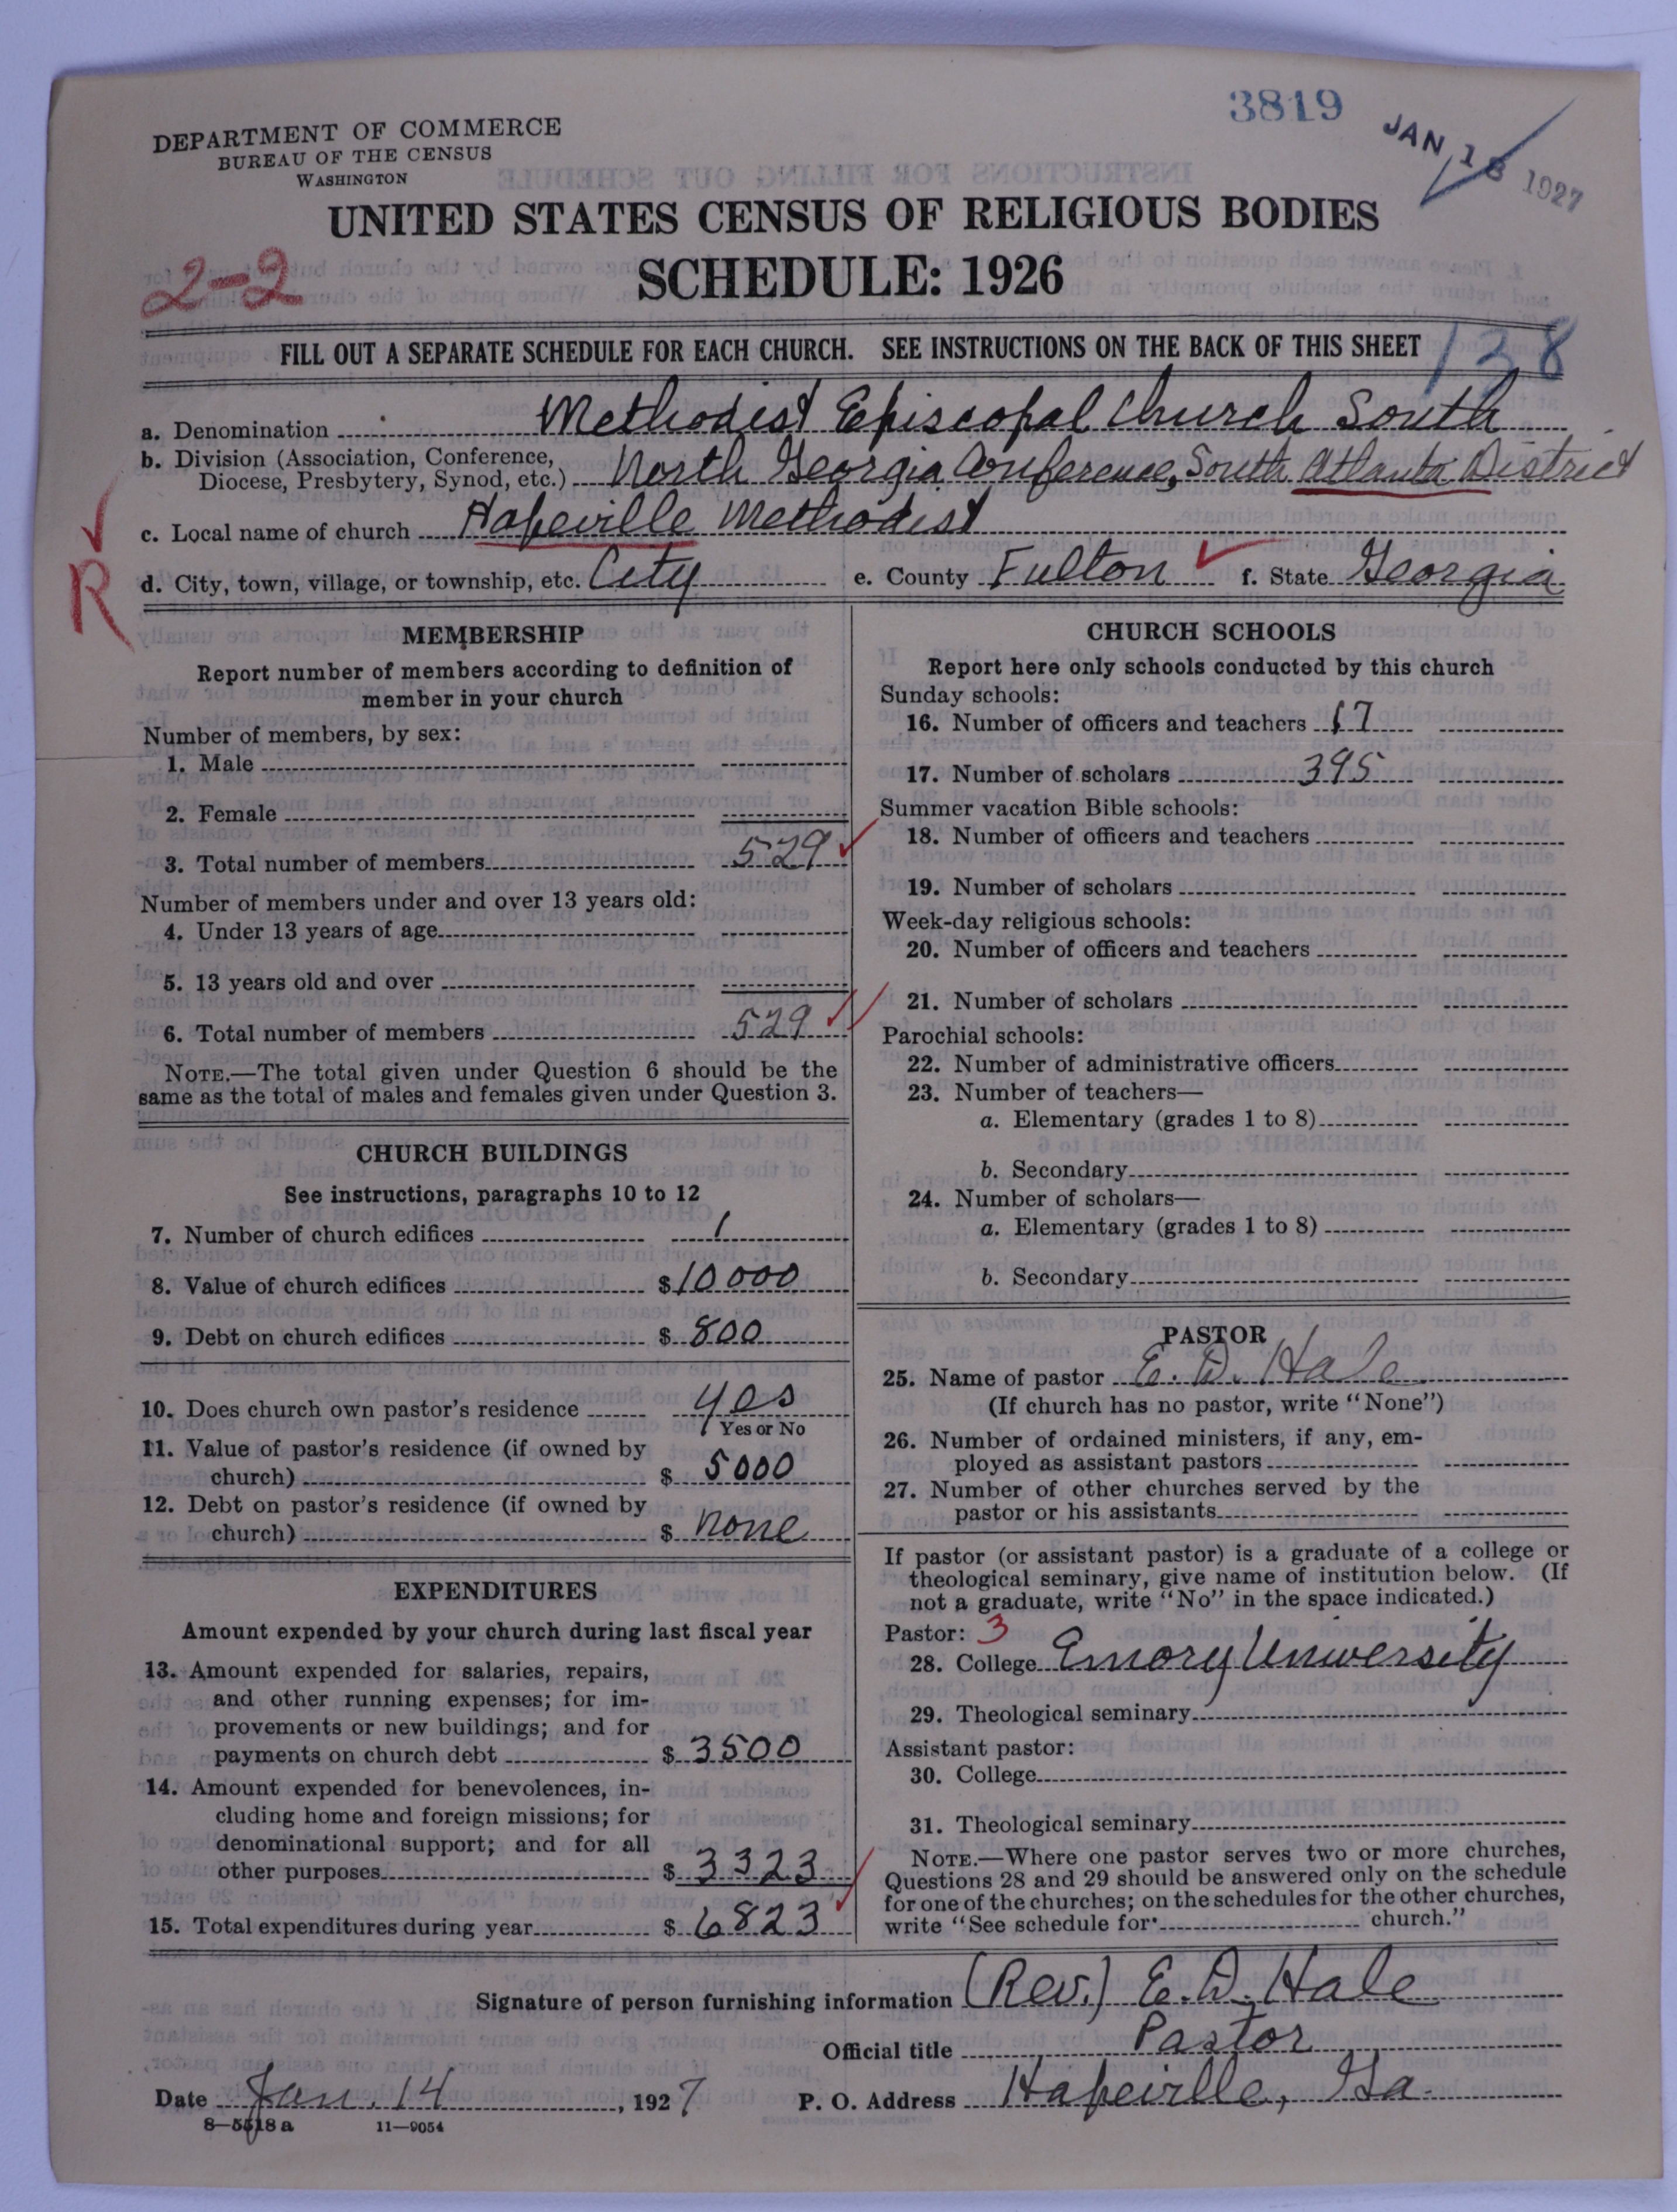 3819
JAN 18 1927
DEPARTMENT OF COMMERCE
BUREAU OF THE CENSUS
WASHINGTON
UNITED STATES CENSUS OF RELIGIOUS BODIES
2-2
SCHEDULE: 1926
FILL OUT A SEPARATE SCHEDULE FOR EACH CHURCH. SEE INSTRUCTIONS ON THE BACK OF THIS SHEET
138
a. Denomination Methodist Episcopal Church South
b. Division (Association, Conference,
Diocese, Presbytery, Synod, etc.) North Georgia Conference, South Atlanta District
c. Local name of church Hapeville Methodist
R
d. City, town, village, or township, etc. City e. County Fulton f. State Georgia
MEMBERSHIP
Report number of members according to definition of
member in your church
Number of members, by sex:
1. Male
2. Female
3. Total number of members 529
Number of members under and over 13 years old:
4. Under 13 years of age
5. 13 years old and over
6. Total number of members 529
NOTE.—The total given under Question 6 should be the
same as the total of males and females given under Question 3.
CHURCH BUILDINGS
See instructions, paragraphs 10 to 12
7. Number of church edifices 1
8. Value of church edifices $ 10 000
9. Debt on church edifices $ 800
10. Does church own pastor's residence yes
Yes or No
11. Value of pastor's residence (if owned by
church) $ 5000
12. Debt on pastor's residence (if owned by
church) $ none
EXPENDITURES
Amount expended by your church during last fiscal year
13. Amount expended for salaries, repairs,
and other running expenses; for im-
provements or new buildings; and for
payments on church debt $ 3500
14. Amount expended for benevolences, in-
cluding home and foreign missions; for
denominational support; and for all
other purposes $ 3323
15. Total expenditures during year $ 6823
CHURCH SCHOOLS
Report here only schools conducted by this church
Sunday schools:
16. Number of officers and teachers 17
17. Number of scholars 395
Summer vacation Bible schools:
18. Number of officers and teachers
19. Number of scholars
Week-day religious schools:
20. Number of officers and teachers
21. Number of scholars
Parochial schools:
22. Number of administrative officers
23. Number of teachers—
a. Elementary (grades 1 to 8)
b. Secondary
24. Number of scholars—
a. Elementary (grades 1 to 8)
b. Secondary
PASTOR
25. Name of pastor E. D. Hale
(If church has no pastor, write "None")
26. Number of ordained ministers, if any, em-
ployed as assistant pastors
27. Number of other churches served by the
pastor or his assistants
If pastor (or assistant pastor) is a graduate of a college or
theological seminary, give name of institution below. (If
not a graduate, write "No" in the space indicated.)
Pastor: 3
28. College Emory University
29. Theological seminary
Assistant pastor:
30. College
31. Theological seminary
NOTE.—Where one pastor serves two or more churches,
Questions 28 and 29 should be answered only on the schedule
for one of the churches; on the schedules for the other churches,
write "See schedule for church."
Signature of person furnishing information (Rev.) E. D. Hale
Official title Pastor
Date Jan. 14, 1927 P. O. Address Hapeville, Ga.
8—5518 a 11—9054